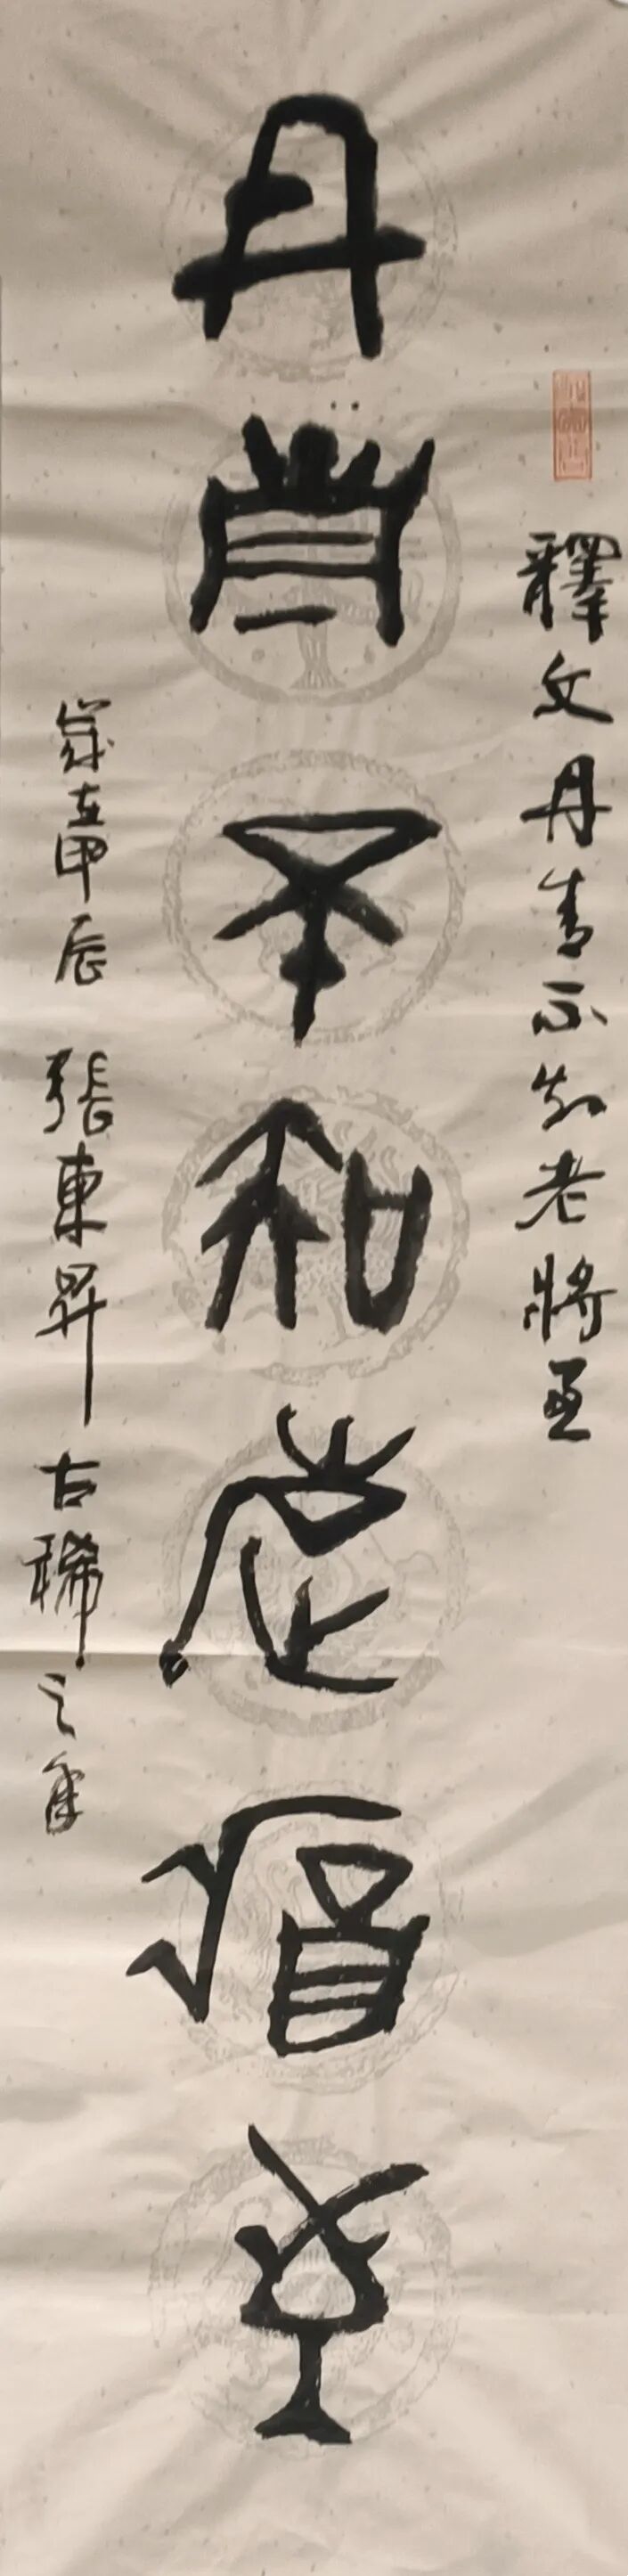 釋文丹青不知老將至
丹青不知老將至
歲在甲辰 張東昇 古稀之年